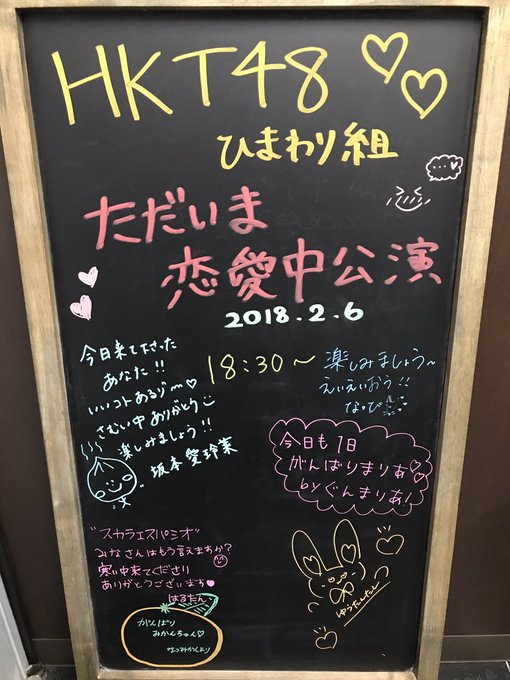 HKT48
ひまわり組
ただいま
恋愛中公演
2018.2.6
18:30～
今日来て下さった
あなた!!
いいコトあるゾ〜♡
さむい中ありがとう
楽しみましょう!!
坂本愛玲菜
楽しみましょう〜
えいえいおう!!
なっぴ
今日も1日
がんばりまりあ♡♡
byぐんまりあ!
"スカラエスパシオ"
みなさんはもう言えますか?
寒い中来てくださり
ありがとうございます♥
はるたん
ゆうたんたん
がんばり
みかんちゃん♡
なつみかんより